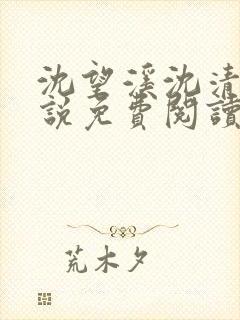 沈望溪沈清
說免費閱讀
荒木夕